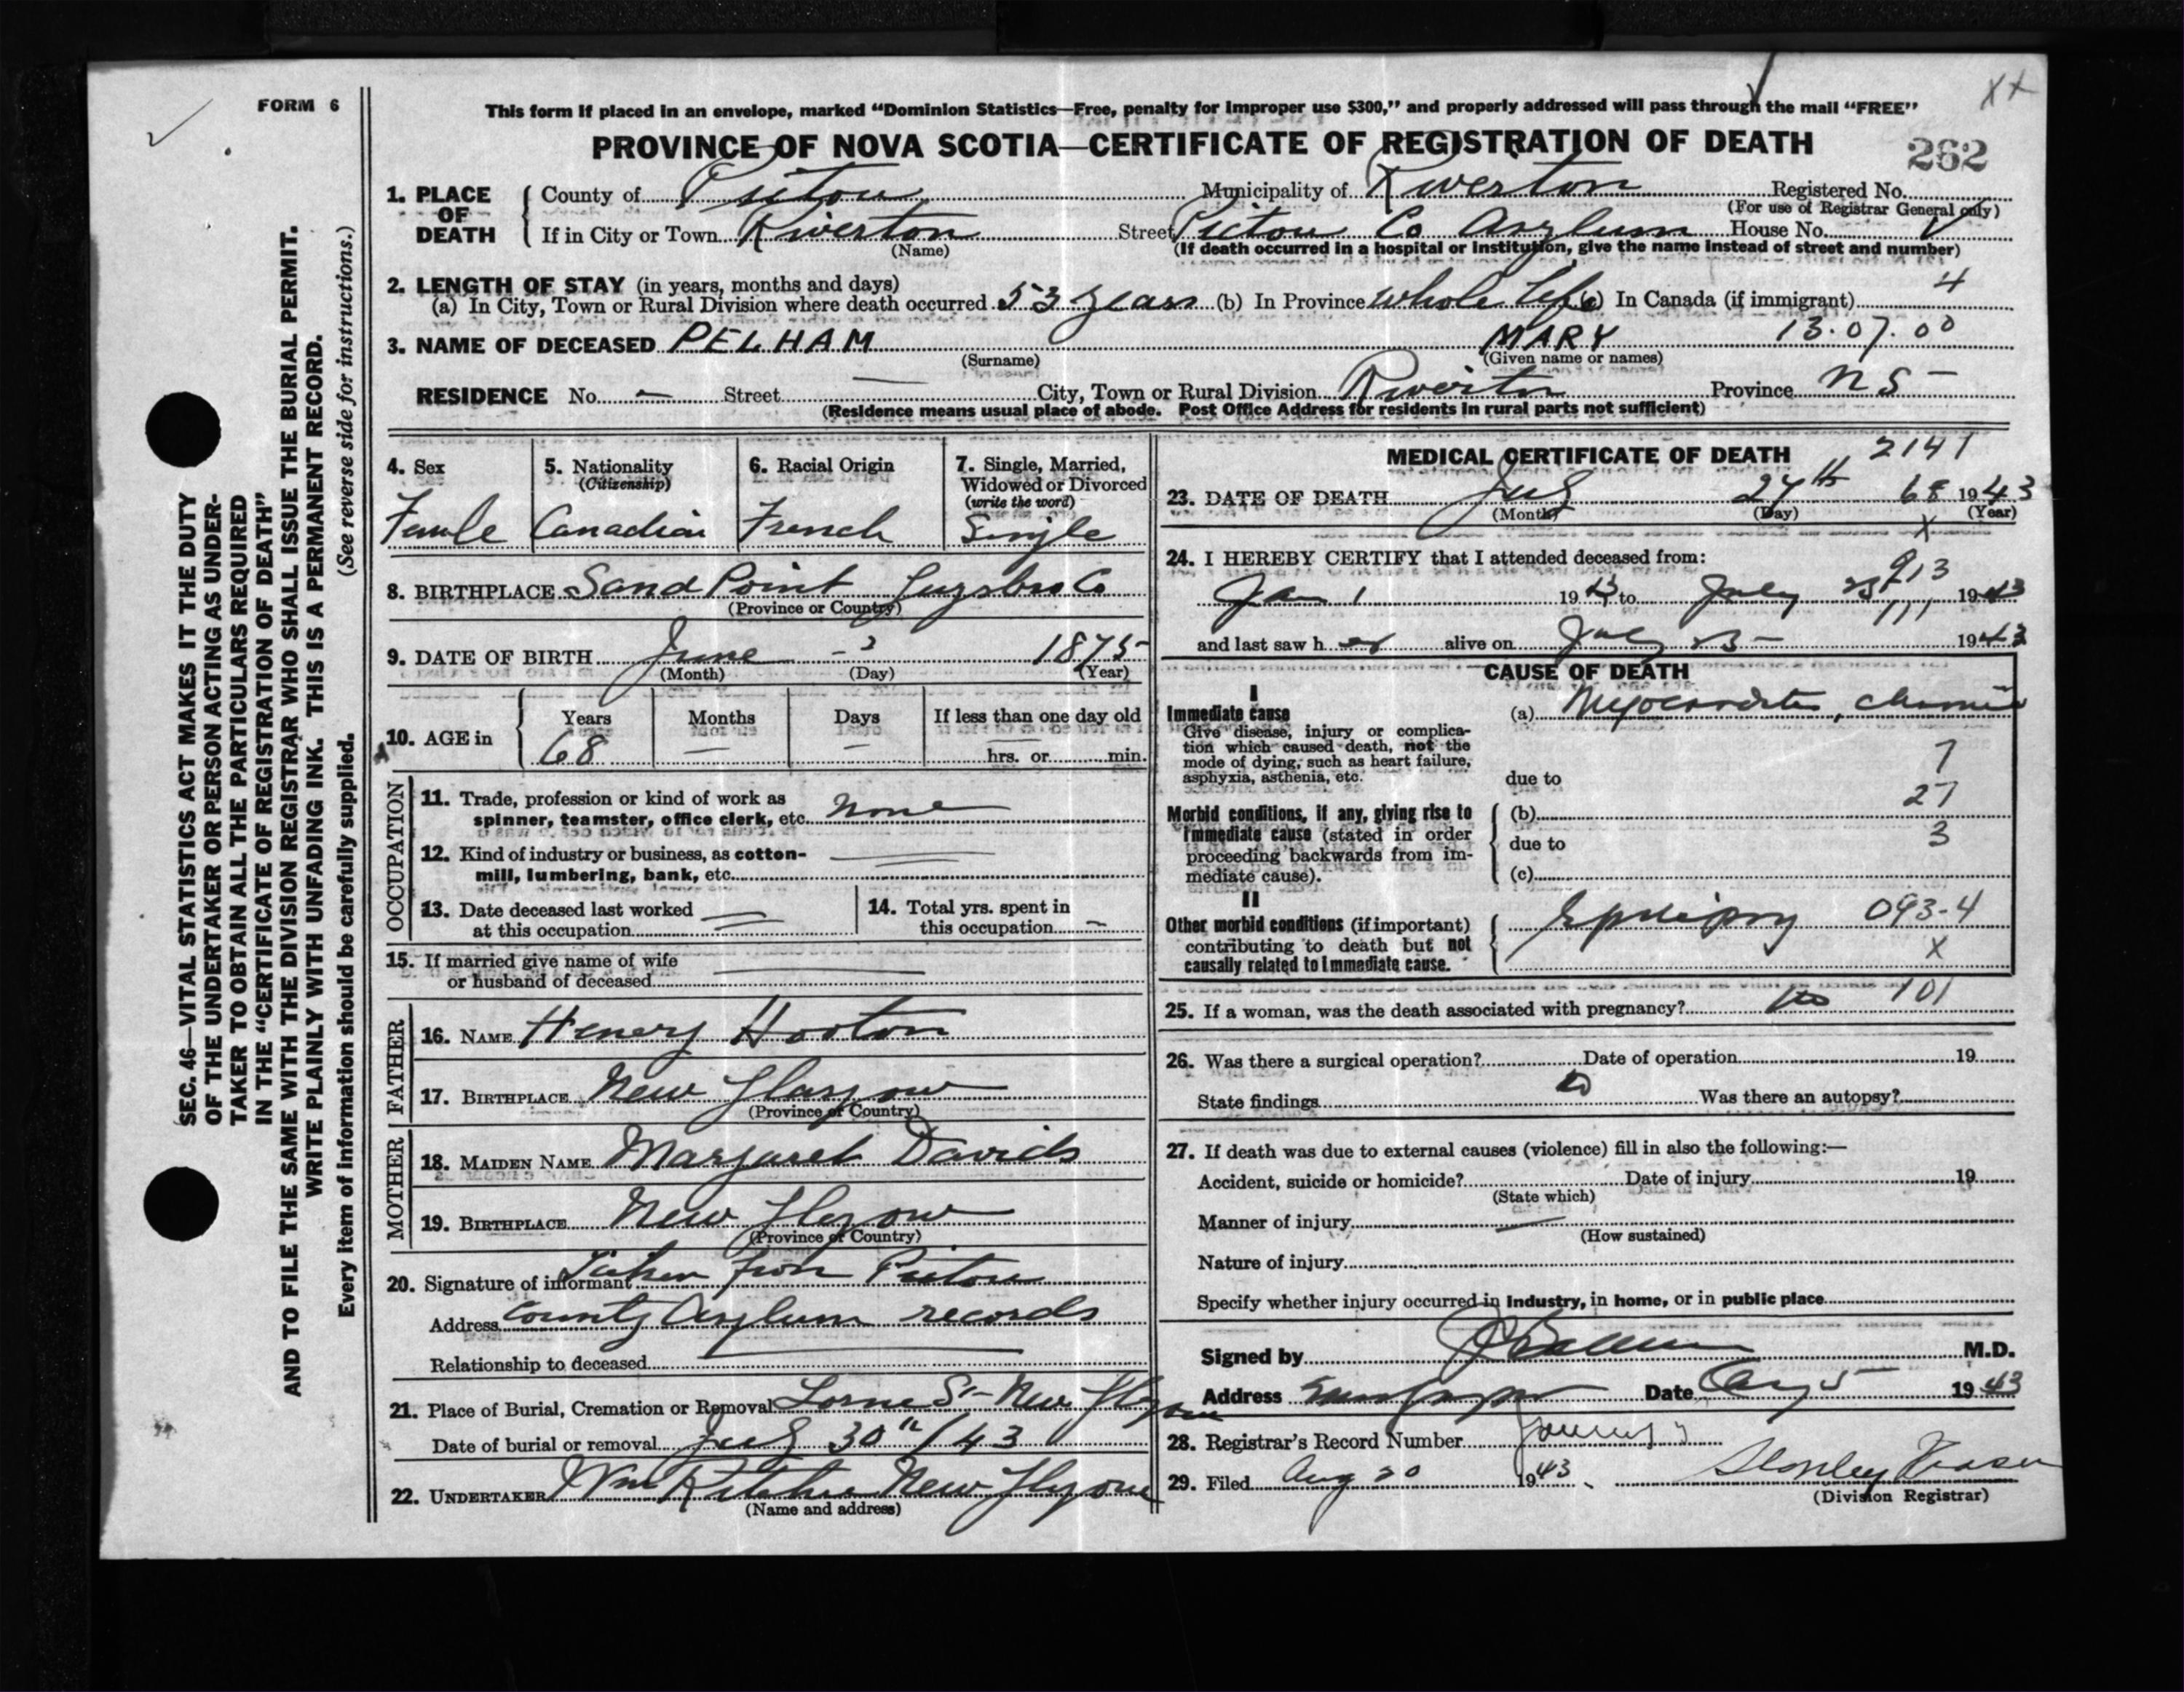 FORM 6
This form if placed in an envelope, marked “Dominion Statistics—Free, penalty for improper use $300,” and properly addressed will pass through the mail “FREE”
PROVINCE OF NOVA SCOTIA—CERTIFICATE OF REGISTRATION OF DEATH
262
1. PLACE OF DEATH
County of Pictou Municipality of Riverton Registered No.
(For use of Registrar General only)
If in City or Town Riverton Street Pictou Co Asylum House No.
(Name) (If death occurred in a hospital or institution, give the name instead of street and number)
2. LENGTH OF STAY (in years, months and days) 4
(a) In City, Town or Rural Division where death occurred 53 years (b) In Province whole Life (c) In Canada (if immigrant)
3. NAME OF DECEASED PELHAM MARY 13.07.00
(Surname) (Given name or names)
RESIDENCE No. — Street — City, Town or Rural Division Riverton Province N S —
(Residence means usual place of abode. Post Office Address for residents in rural parts not sufficient)
4. Sex
Female
5. Nationality
(Citizenship)
Canadian
6. Racial Origin
French
7. Single, Married,
Widowed or Divorced
(write the word)
Single
8. BIRTHPLACE Sand Point Guysboro Co
(Province or Country)
9. DATE OF BIRTH June 1875
(Month) (Day) (Year)
10. AGE in
Years Months Days If less than one day old
68 — — hrs. or min.
OCCUPATION
11. Trade, profession or kind of work as
spinner, teamster, office clerk, etc. None
12. Kind of industry or business, as cotton-
mill, lumbering, bank, etc.
13. Date deceased last worked
at this occupation
14. Total yrs. spent in
this occupation
15. If married give name of wife
or husband of deceased
FATHER
16. NAME Henery Hooton
17. BIRTHPLACE New Glasgow
(Province or Country)
MOTHER
18. MAIDEN NAME Margaret Davids
19. BIRTHPLACE New Glasgow
(Province or Country)
20. Signature of informant Taken from Pictou
Address County Asylum records
Relationship to deceased
21. Place of Burial, Cremation or Removal Lorne St — New Glasgow
Date of burial or removal July 30th/43
22. UNDERTAKER Wm Ritchie New Glasgow
(Name and address)
MEDICAL CERTIFICATE OF DEATH 2141
23. DATE OF DEATH July 27th 68 1943
(Month) (Day) (Year)
X
24. I HEREBY CERTIFY that I attended deceased from:
913
Jan 1 19 to July 1943
111
and last saw her alive on July 1943
CAUSE OF DEATH
I
Immediate cause
Give disease, injury or complica-
tion which caused death, not the
mode of dying, such as heart failure,
asphyxia, asthenia, etc.
(a) Myocarditis, chronic
7
due to
27
Morbid conditions, if any, giving rise to
immediate cause (stated in order
proceeding backwards from im-
mediate cause).
(b)
due to 3
(c)
II
Other morbid conditions (if important)
contributing to death but not
causally related to immediate cause.
Epilepsy 093-4
X
25. If a woman, was the death associated with pregnancy? No 101
26. Was there a surgical operation? Date of operation 19
State findings Was there an autopsy?
27. If death was due to external causes (violence) fill in also the following:—
Accident, suicide or homicide? Date of injury 19
(State which)
Manner of injury
(How sustained)
Nature of injury
Specify whether injury occurred in industry, in home, or in public place
Signed by M.D.
Address Date Aug 5 1943
28. Registrar's Record Number
29. Filed Aug 20 1943 Stanley Fraser
(Division Registrar)
SEC. 46—VITAL STATISTICS ACT MAKES IT THE DUTY
OF THE UNDERTAKER OR PERSON ACTING AS UNDER-
TAKER TO OBTAIN ALL THE PARTICULARS REQUIRED
IN THE “CERTIFICATE OF REGISTRATION OF DEATH”
AND TO FILE THE SAME WITH THE DIVISION REGISTRAR WHO SHALL ISSUE THE BURIAL PERMIT.
WRITE PLAINLY WITH UNFADING INK. THIS IS A PERMANENT RECORD.
Every item of information should be carefully supplied. (See reverse side for instructions.)